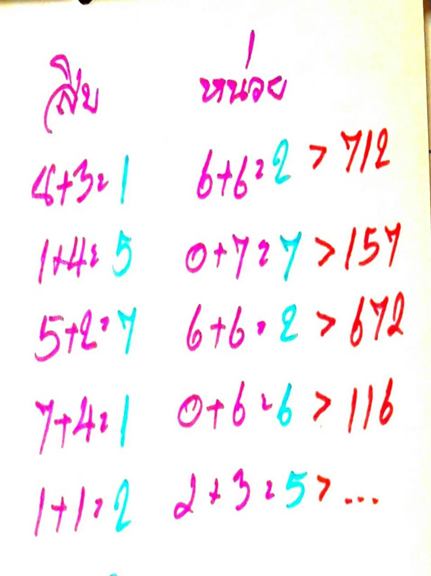 สิบ หน่วย
8+3=1 6+6=2 > 712
1+4=5 0+7=7 > 157
5+2=7 6+6=2 > 672
7+4=1 0+6=6 > 116
1+1=2 2+3=5 > ...